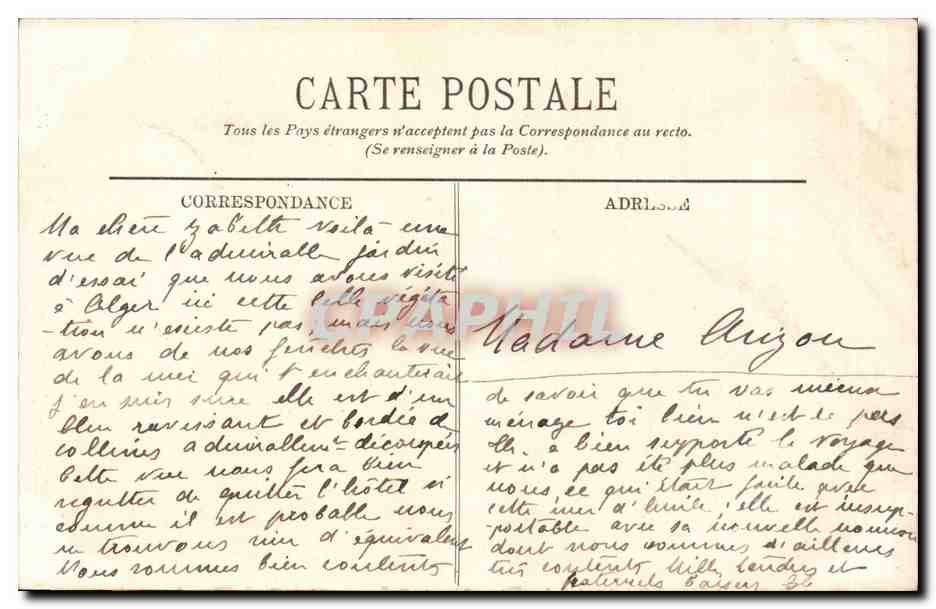 CARTE POSTALE
Tous les Pays étrangers n'acceptent pas la Correspondance au recto.
(Se renseigner à la Poste).
CORRESPONDANCE
Ma chère Zabeth voilà une
vue de l'admirable jardin
d'essai que nous avons visité
à Alger ici cette belle végéta
-tion n'existe pas, mais nous
avons de nos fenêtres la vue
de la mer qui t'enchanterait
j'en suis sure elle est d'un
bleu ravissant et bordée de
collines admirablemt découpées
Cette vue nous fera bien
regretter de quitter l'hôtel si
comme il est probable nous
ne trouvons rien d'équivalent
Nous sommes bien contents
ADRESSE
Madame Auzou
de savoir que tu vas mieux
ménage toi bien n'est ce pas
a bien supporté le voyage
et n'a pas été plus malade que
nous, ce qui était facile avec
cette mer d'huile; elle est insup-
-portable avec sa nouvelle nounou
dont nous sommes d'ailleurs
très contents Mille tendres et
fraternels baisers
CPAPHIL